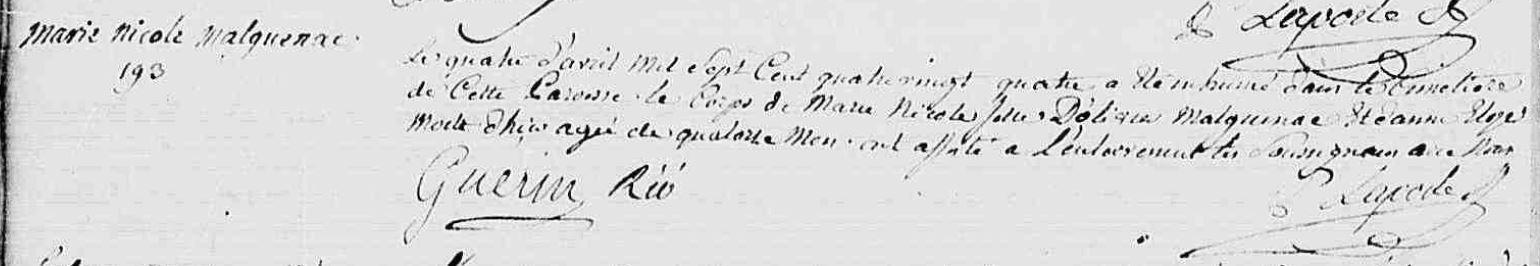 Lapode
Marie Nicole Malguenac
193
Le quatre d'avril mil sept Cent quatrevingt quatre a Eté inhumé dans le Cimetiere
de Cette Paroisse le Corps de Marie Nicole fille D'olivier Malguenac Et d'anne
morte d'hier agée de quatorze mois ont assisté a L'enterrement les Soussignans avec Nous
Guerin Rio
Lapode